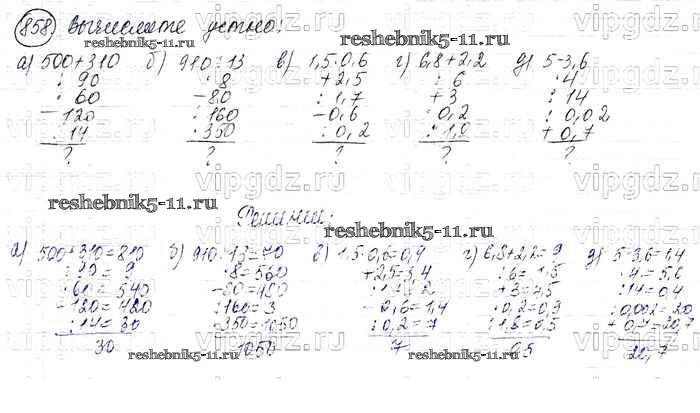 858) Вычислите устно:
а) 500+310 б) 910:13 в) 1,5·0,6 г) 6,8+2,2 д) 5-3,6
: 90 · 8 +2,5 : 6 · 4
· 60 -80 : 1,7 +3 : 14
-120 : 160 -0,6 : 0,2 : 0,02
: 14 · 350 : 0,2 : 1,8 + 0,7
? ? ? ? ?
reshebnik5-11.ru
Решение:
а) 500+310=810 б) 910:13=70 в) 1,5·0,6=0,9 г) 6,8+2,2=9 д) 5-3,6=1,4
:90=9 ·8=560 +2,5=3,4 :6=1,5 ·4=5,6
·60=540 -80=480 +3=4,5 :14=0,4
-120=420 :160=3 -0,6=1,4 :0,2=0,9 :0,002=20
:14=30 ·350=1050 :0,2=7 :1,8=0,5 +0,7=20,7
30 1050 7 0,5 20,7
reshebnik5-11.ru
vipgdz.ru